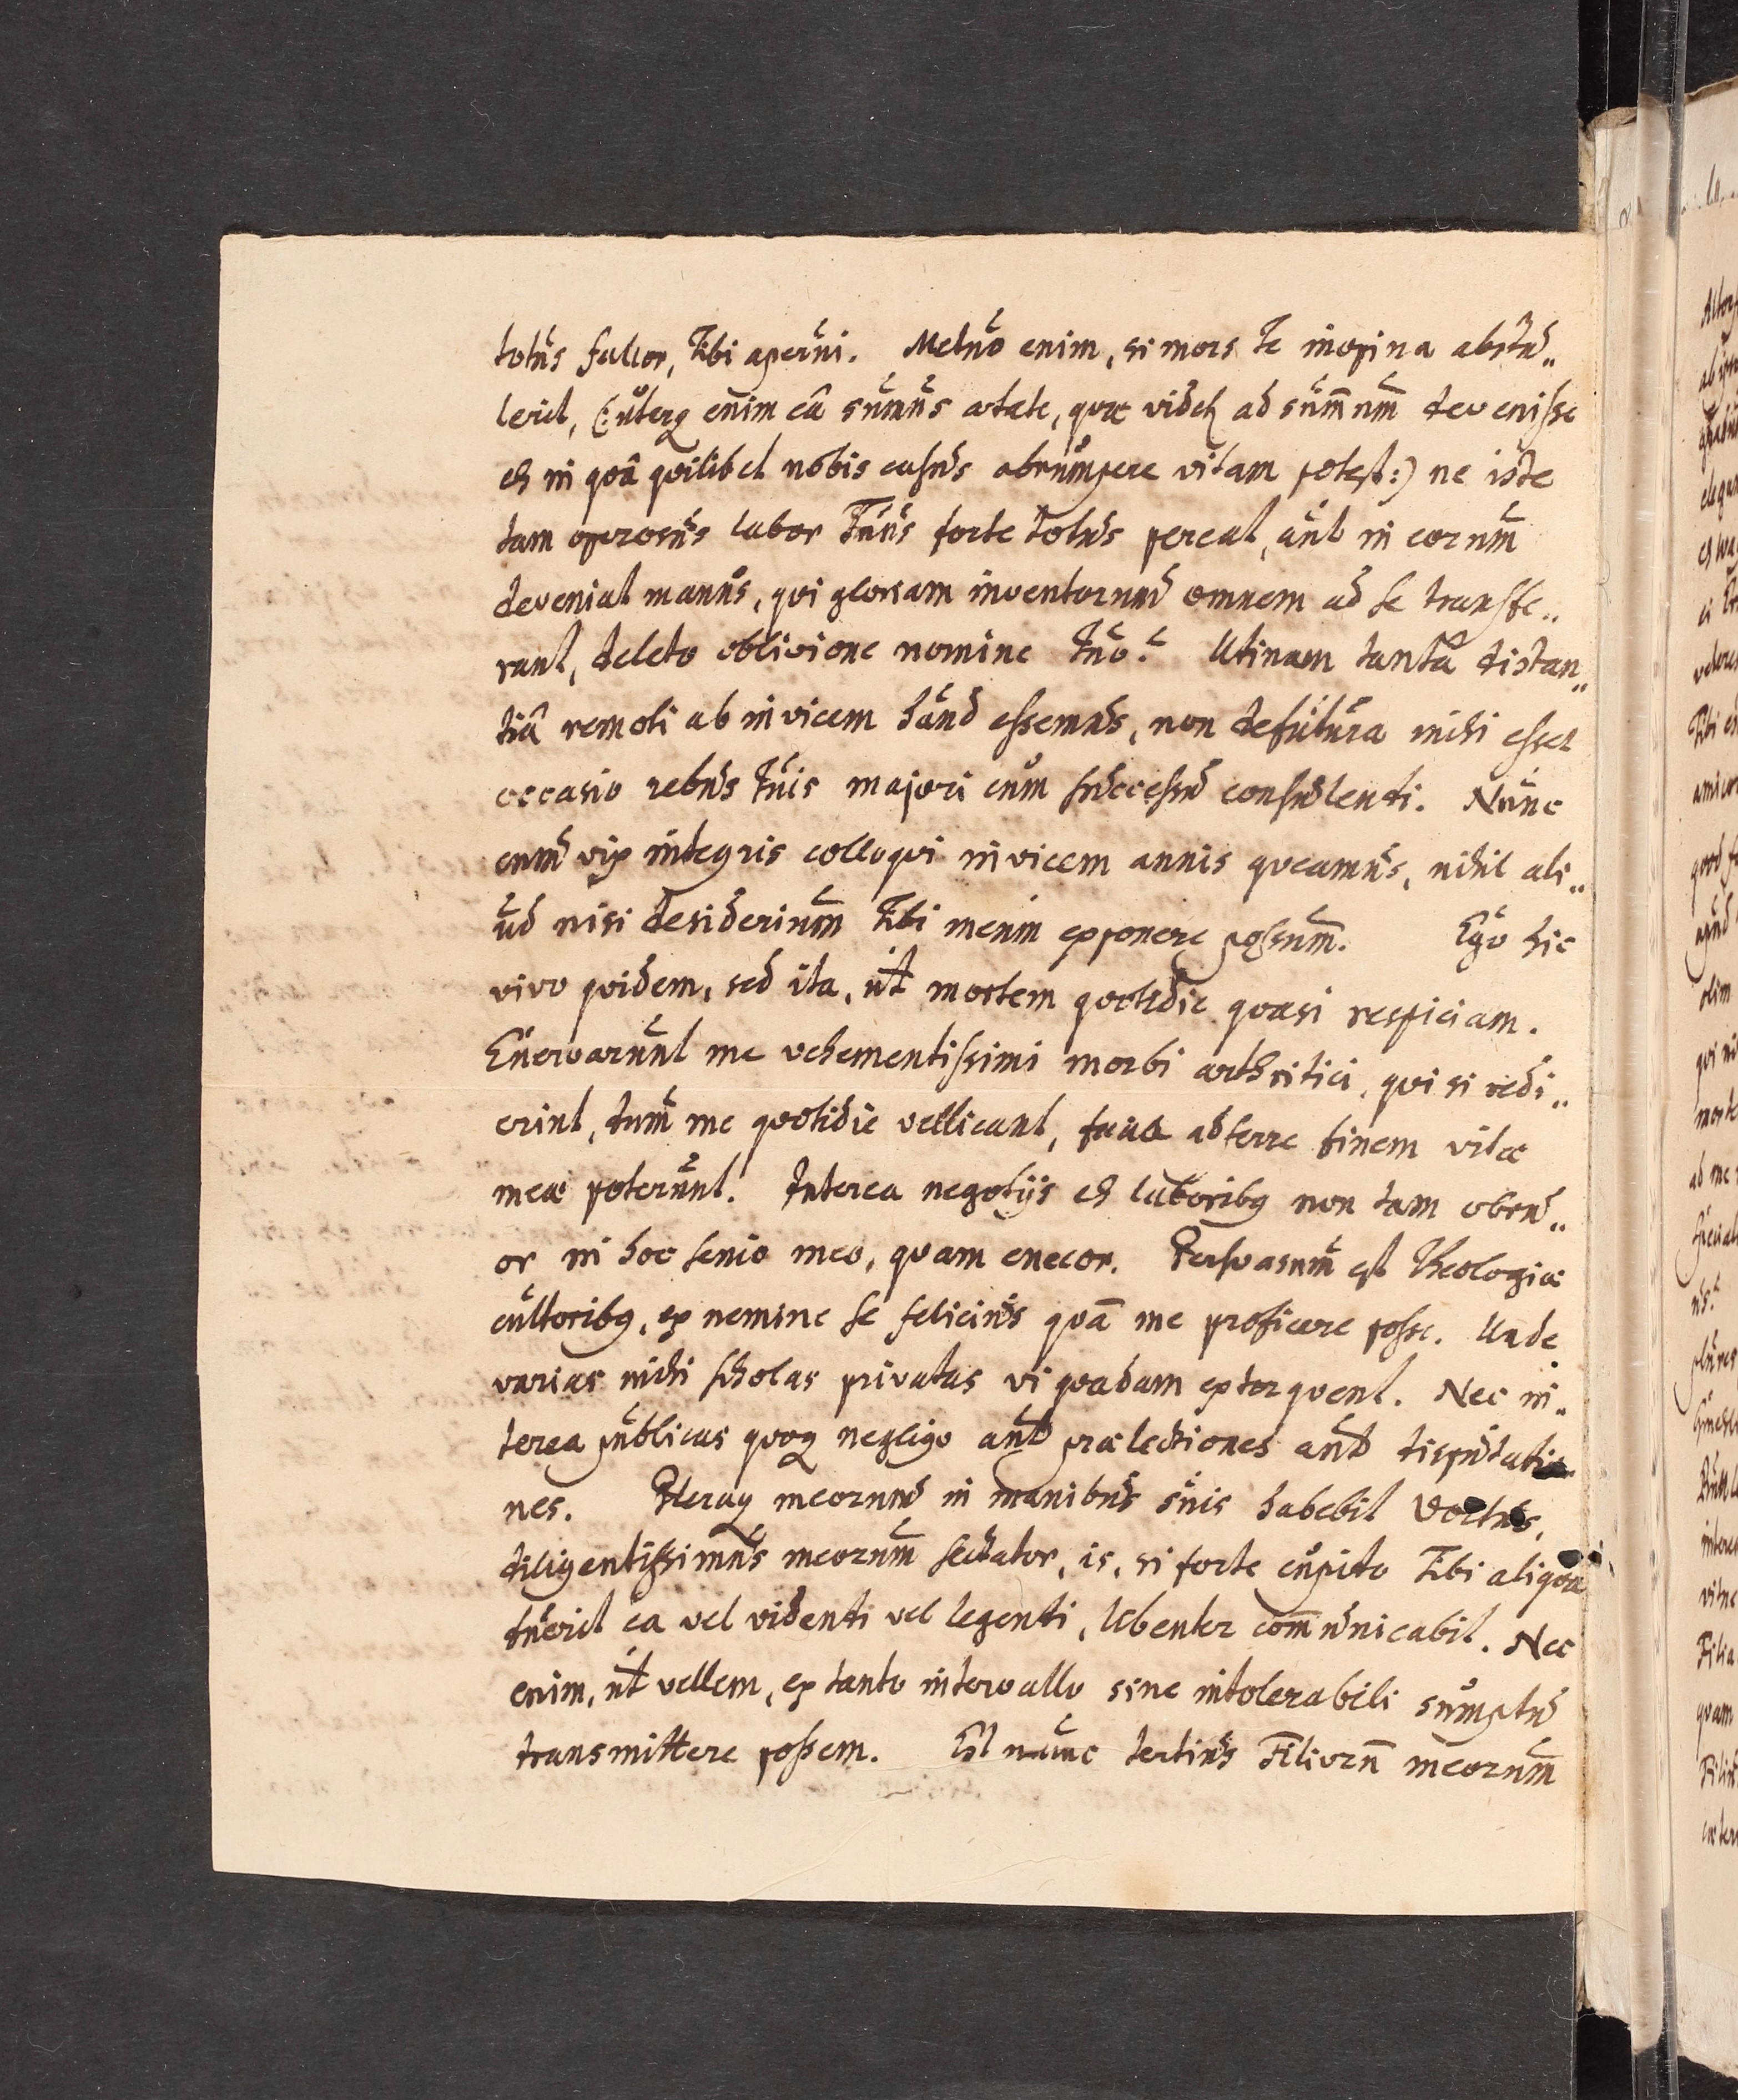 totus fallor, Tibi aperui. Metuo enim, si mors Te inopina abstu„
lerit, (: uterq enim eâ sumus ætate, quæ videt ad summum devenisse
et in quâ quilibet nobis casus abrumpere vitam potest :) ne iste
tam operosus labor Tuus forte totus pereat, aut in eorum
deveniat manus, qui gloriam inventorum omnem ad se transfe„
rant, deleto oblivione nomine Tuo. Utinam tantâ distan„
tiâ remoti ab invicem haud essemus, non defutura mihi esset
occasio rebus Tuis majori cum successu consulenti. Nunc
cum vix integris colloqui invicem annis queamus, nihil ali„
ud nisi desiderium Tibi meum exponere possum. Ego hic
vivo quidem, sed ita, ut mortem quotidie quasi respiciam.
Enervarunt me vehementissimi morbi arthritici, qui si redi„
erint, tum me quotidie vellicant, facile adferre finem vitæ
meæ poterunt. Interea negotijs et laboribq non tam obru„
or in hoc senio meo, quam enecor. Persuasum est Theologiæ
cultoribq, ex nemine se felicius quā me proficere posse. Unde
varias mihi scholas privatas vi quadam extorquent. Nec in„
terea publicas quoq negligo aut prælectiones aut disputatio
nes. Pleraq meorum in manibus suis habebit Voctus,
diligentissimus meorum sectator, is, si forte cupido Tibi aliqua
fuerit ea vel videnti vel legenti, libenter com̄unicabit. Nec
enim, ut vellem, ex tanto intervallo sine intolerabili sumptu
transmittere possem. Est nunc tertius Filiorū meorum